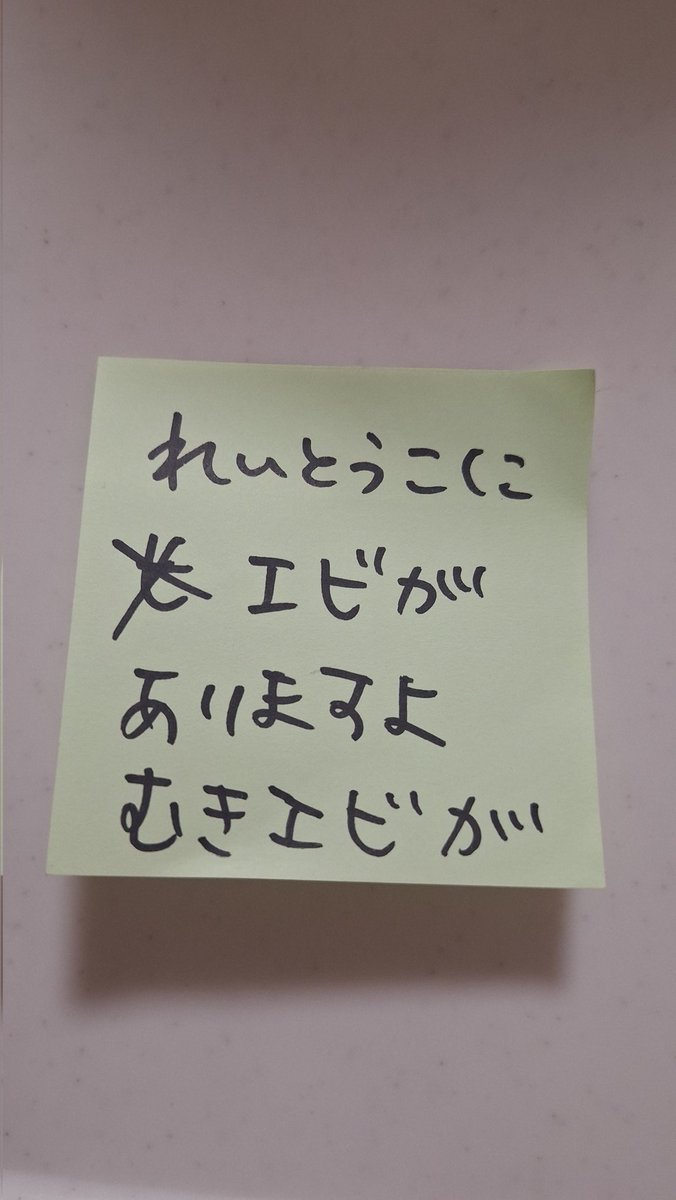 れいとうこに
エビが
ありますよ
むきエビが